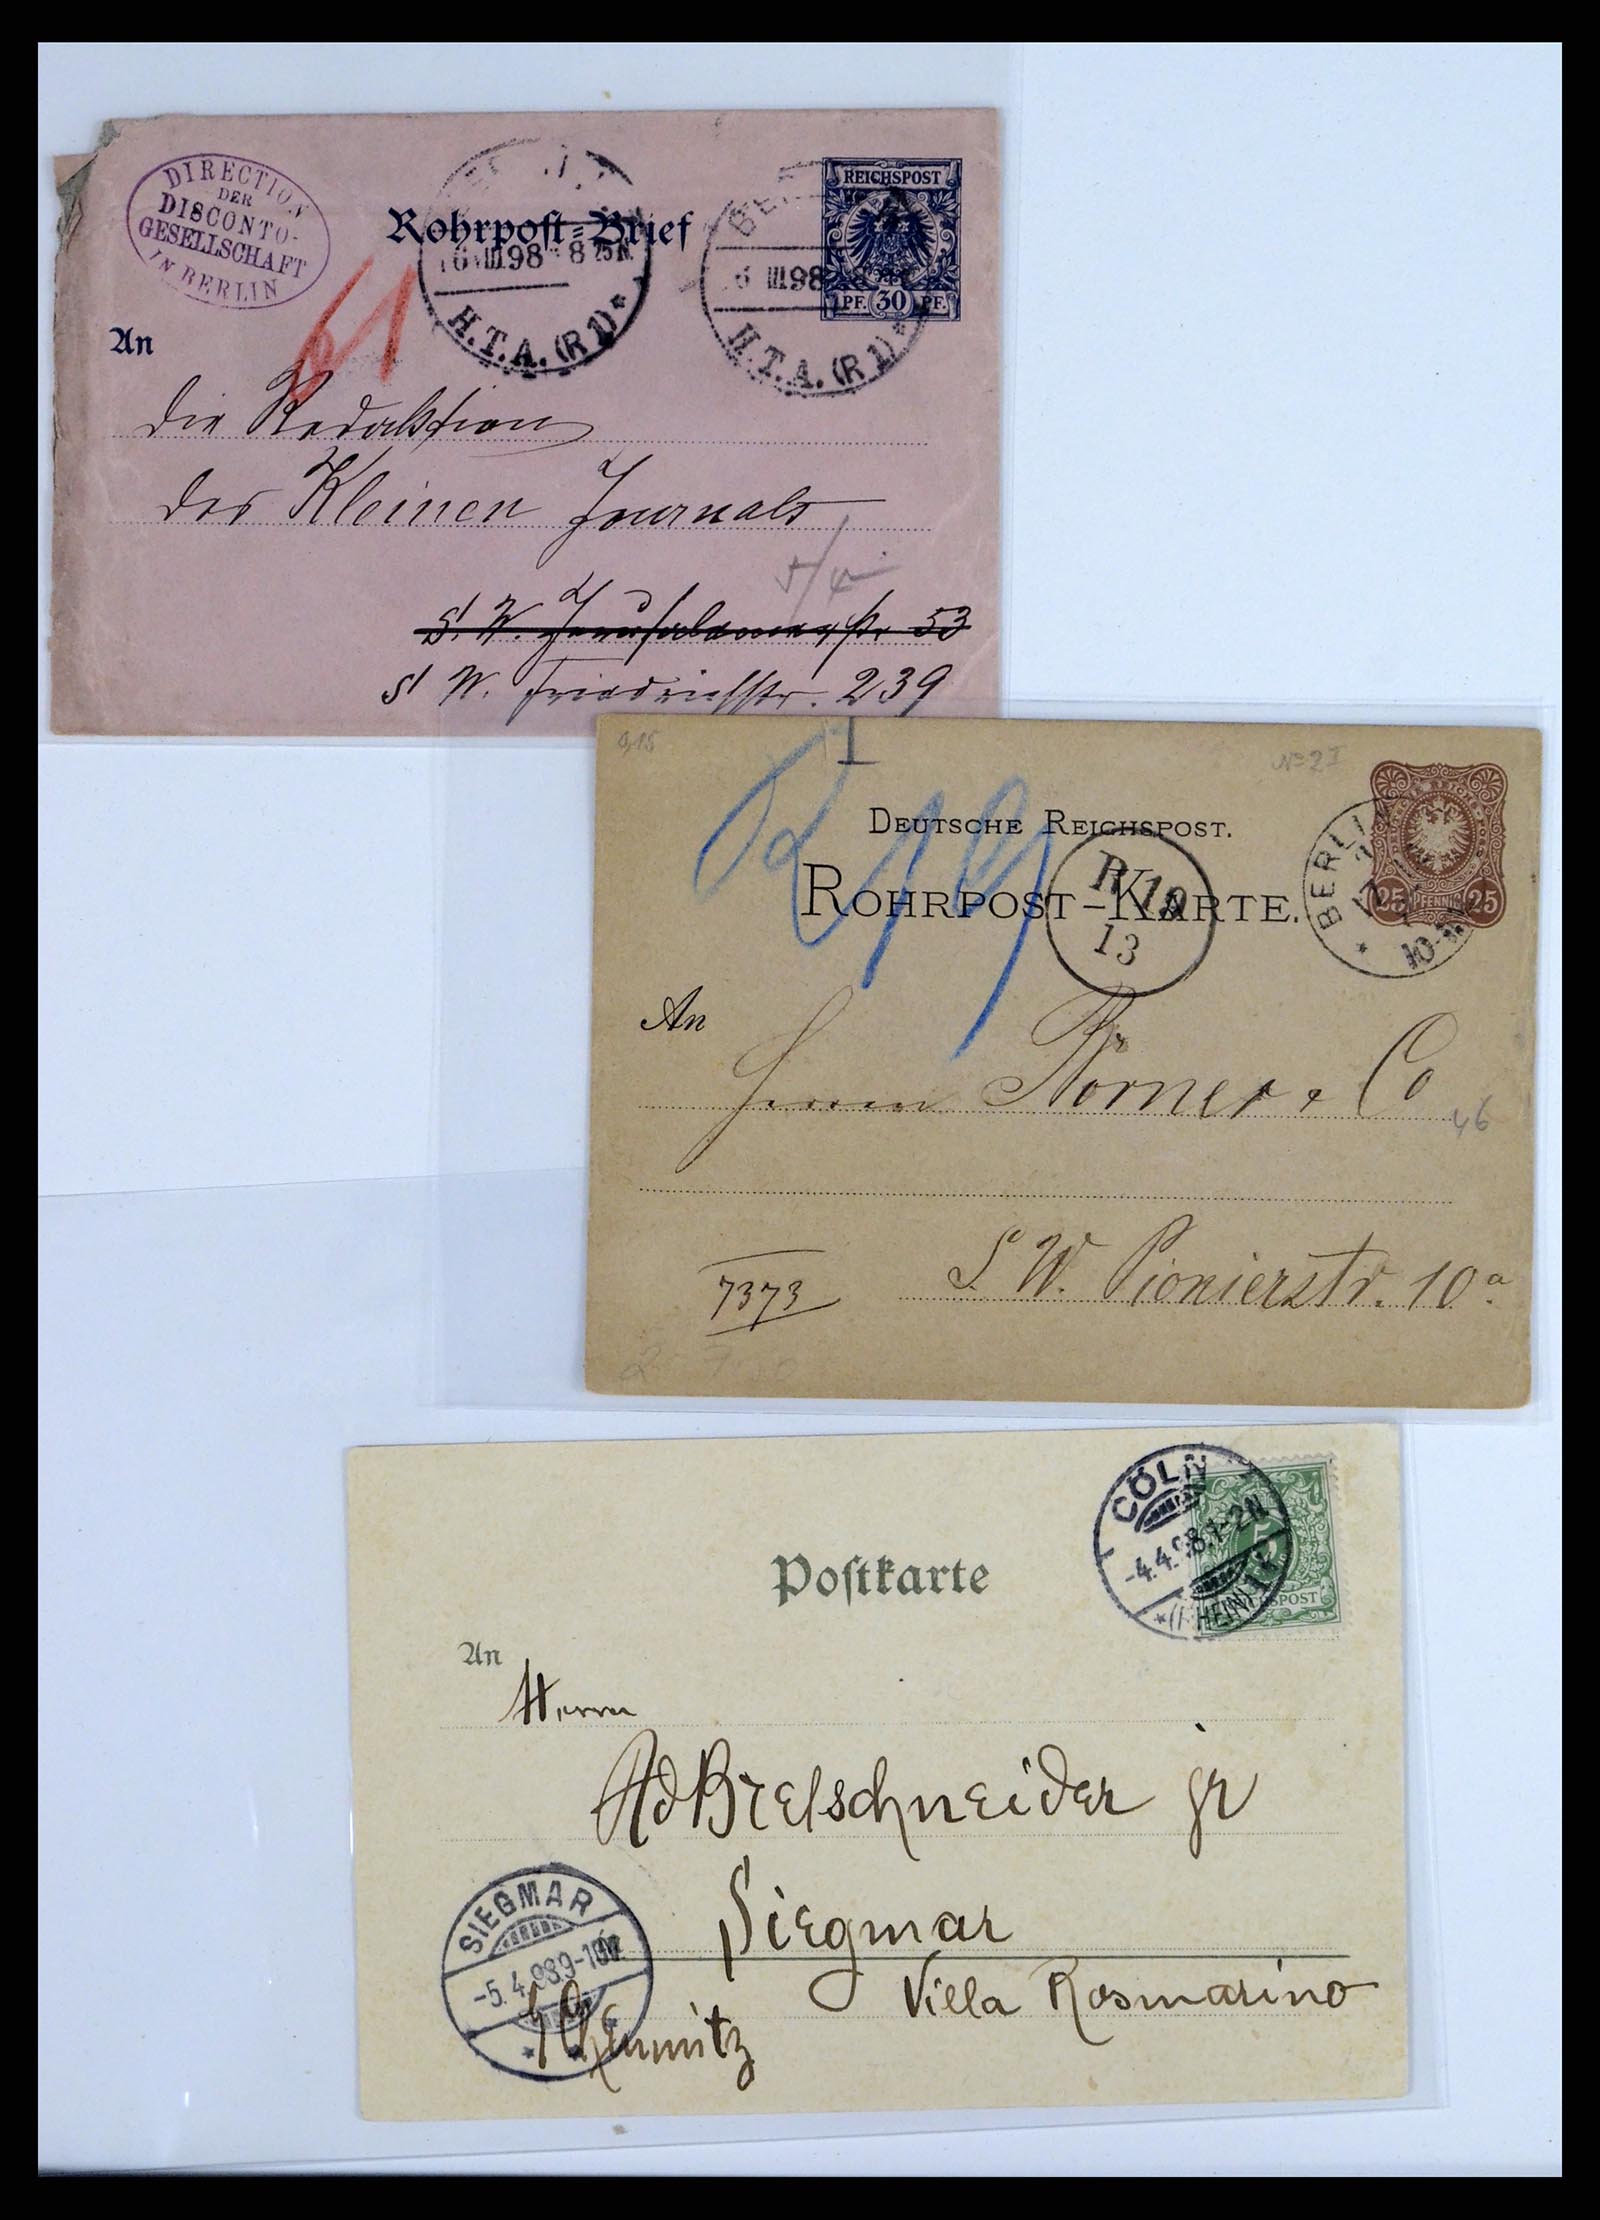 DIRECTION
DER
DISCONTO-
GESELLSCHAFT
IN BERLIN
61
Rohrpost-Brief
6 III 98 8 25 N.
H.T.A. (R 1) *
6 III 98 8
H.T.A. (R 1) *
REICHSPOST
PF. 30 PF.
An
die Redaktion
des Kleinen Journals
S. W. Jerusalemerstr 53
S W. Friedrichstr. 239
Nº 2 I
DEUTSCHE REICHSPOST.
ROHRPOST-KARTE.
R 19
13
BERLIN
25 PFENNIG 25
An
Herrn Körner & Co
46
7373
S. W. Pionierstr. 10a
Postkarte
CÖLN
-4.4.98.1-2N
*(RHEIN)1k
5
REICHSPOST
An
Herrn
Ad Bretschneider jr
Siegmar
SIEGMAR
-5.4.98.9-10V
* *
Villa Rosmarino
Chemnitz